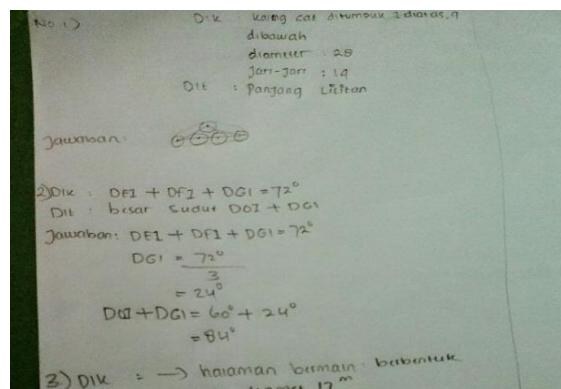 No 1)
Dik : kaleng cat ditumpuk 1 diatas, 4
dibawah
diameter : 28
Jari-Jari : 14
Dit : Panjang Lilitan
Jawaban:
2) Dik : DEI + DFI + DGI = 72°
Dit : besar Sudut DOI + DGI
Jawaban: DEI + DFI + DGI = 72°
DGI = 72°
3
= 24°
DOI + DGI = 60° + 24°
= 84°
3) Dik : → halaman bermain : berbentuk
17 m